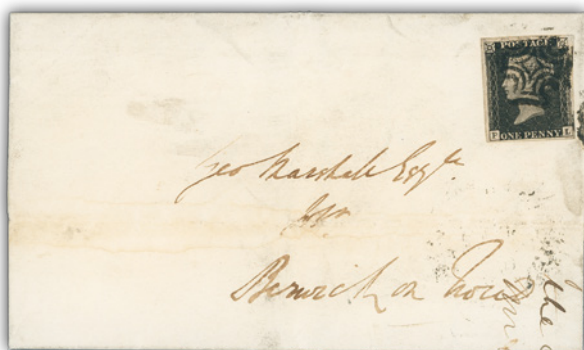 POSTAGE
P ONE PENNY L
Geo Marshall Esqre
Berwick on Tweed
the